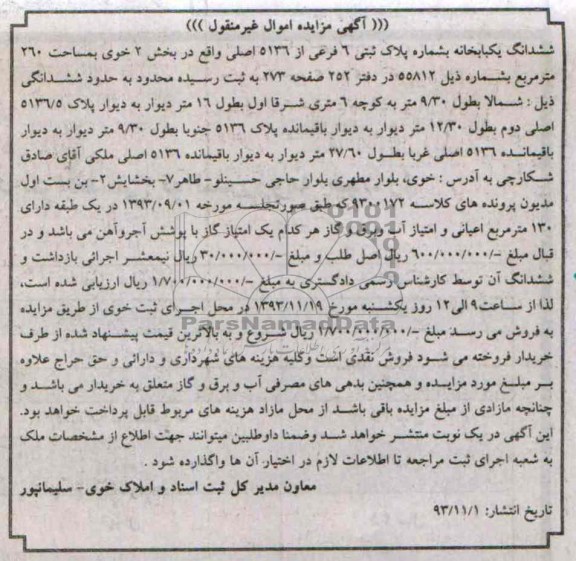 ((( آگهی مزایده اموال غیرمنقول )))
ششدانگ یکبابخانه بشماره پلاک ثبتی ۶ فرعی از ۵۱۳۶ اصلی واقع در بخش ۲ خوی بمساحت ۲۶۰
مترمربع بشماره ذیل ۵۵۸۱۲ در دفتر ۲۵۲ صفحه ۲۷۳ به ثبت رسیده محدود به حدود ششدانگی
ذیل : شمالا بطول ۹/۳۰ متر به کوچه ۶ متری شرقا اول بطول ۱۶ متر دیوار به دیوار پلاک ۵۱۳۶/۵
اصلی دوم بطول ۱۲/۳۰ متر دیوار به دیوار باقیمانده پلاک ۵۱۳۶ جنوبا بطول ۹/۳۰ متر دیوار به دیوار
باقیمانده ۵۱۳۶ اصلی غربا بطول ۲۷/۶۰ متر دیوار به دیوار باقیمانده ۵۱۳۶ اصلی ملکی آقای صادق
شکارچی به آدرس : خوی، بلوار مطهری بلوار حاجی حسینلو- طاهر۷- بخشایش۲- بن بست اول
مدیون پرونده های کلاسه ۹۳۰۰۱۷۲ که طبق صورتجلسه مورخه ۱۳۹۳/۰۹/۰۱ در یک طبقه دارای
۱۳۰ مترمربع اعیانی و امتیاز آب و برق و گاز هر کدام یک امتیاز گاز با پوشش آجروآهن می باشد و در
قبال مبلغ -/۶۰۰/۰۰۰/۰۰۰ ریال اصل طلب و مبلغ -/۳۰/۰۰۰/۰۰۰ ریال نیمعشر اجرائی بازداشت و
ششدانگ آن توسط کارشناس رسمی دادگستری به مبلغ -/۱/۷۰۰/۰۰۰/۰۰۰ ریال ارزیابی شده است،
لذا از ساعت ۹ الی ۱۲ روز یکشنبه مورخ ۱۳۹۳/۱۱/۱۹ در محل اجرای ثبت خوی از طریق مزایده
به فروش می رسد مبلغ ریال شروع و به بالاترین قیمت پیشنهاد شده از طرف
خریدار فروخته می شود فروش نقدی است وکلیه هزینه های شهرداری و دارائی و حق حراج علاوه
بر مبلغ مورد مزایده و همچنین بدهی های مصرفی آب و برق و گاز متعلق به خریدار می باشد و
چنانچه مازادی از مبلغ مزایده باقی باشد از محل مازاد هزینه های مربوط قابل پرداخت خواهد بود.
این آگهی در یک نوبت منتشر خواهد شد وضمنا داوطلبین میتوانند جهت اطلاع از مشخصات ملک
به شعبه اجرای ثبت مراجعه تا اطلاعات لازم در اختیار آن ها واگذارده شود .
معاون مدیر کل ثبت اسناد و املاک خوی- سلیمانپور
تاریخ انتشار: ۹۳/۱۱/۱
ParsNamadData